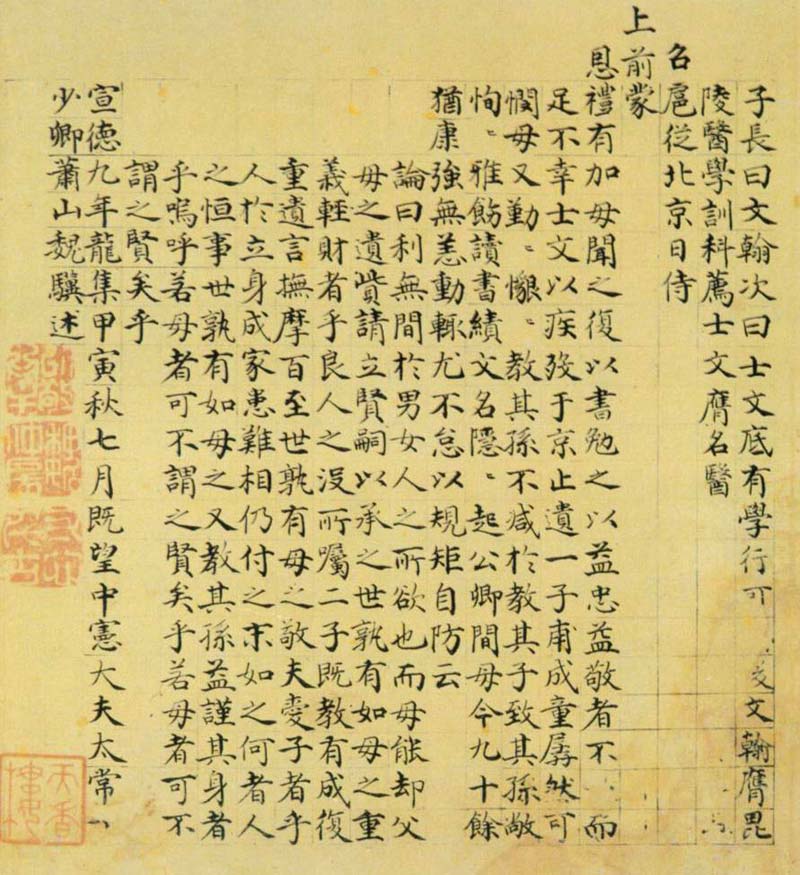 子長曰文翰次曰士文底有學行可 文文翰膺毘
陵醫學訓科薦士文膺名醫
名扈從北京日侍
上前蒙
恩禮有加毋聞之復以書勉之以益忠益敬者不 而
足不幸士文以疾歿于京止遺一子甫成童孱然可
憫毋又勤〻懇〻教其孫不减於教其子致其孫敞
恂〻雅飭讀書績文名隱〻起公卿間毋今九十餘
猶康強無恙動輒尤不怠以規矩自防云
論曰利無間於男女人之所欲也而毋能却父
毋之遺貲請立賢嗣以承之世孰有如毋之重
義輕財者乎良人之沒所囑二子既教有成復
重遺言撫摩百至世孰有毋之敬夫愛子者乎
人於立身成家患難相仍付之末如之何者人
之恒事世孰有如毋之又教其孫益謹其身者
乎嗚呼若毋者可不謂之賢矣乎若毋者可不
謂之賢矣乎
宣德九年龍集甲寅秋七月既望中憲大夫太常
少卿蕭山魏驥述